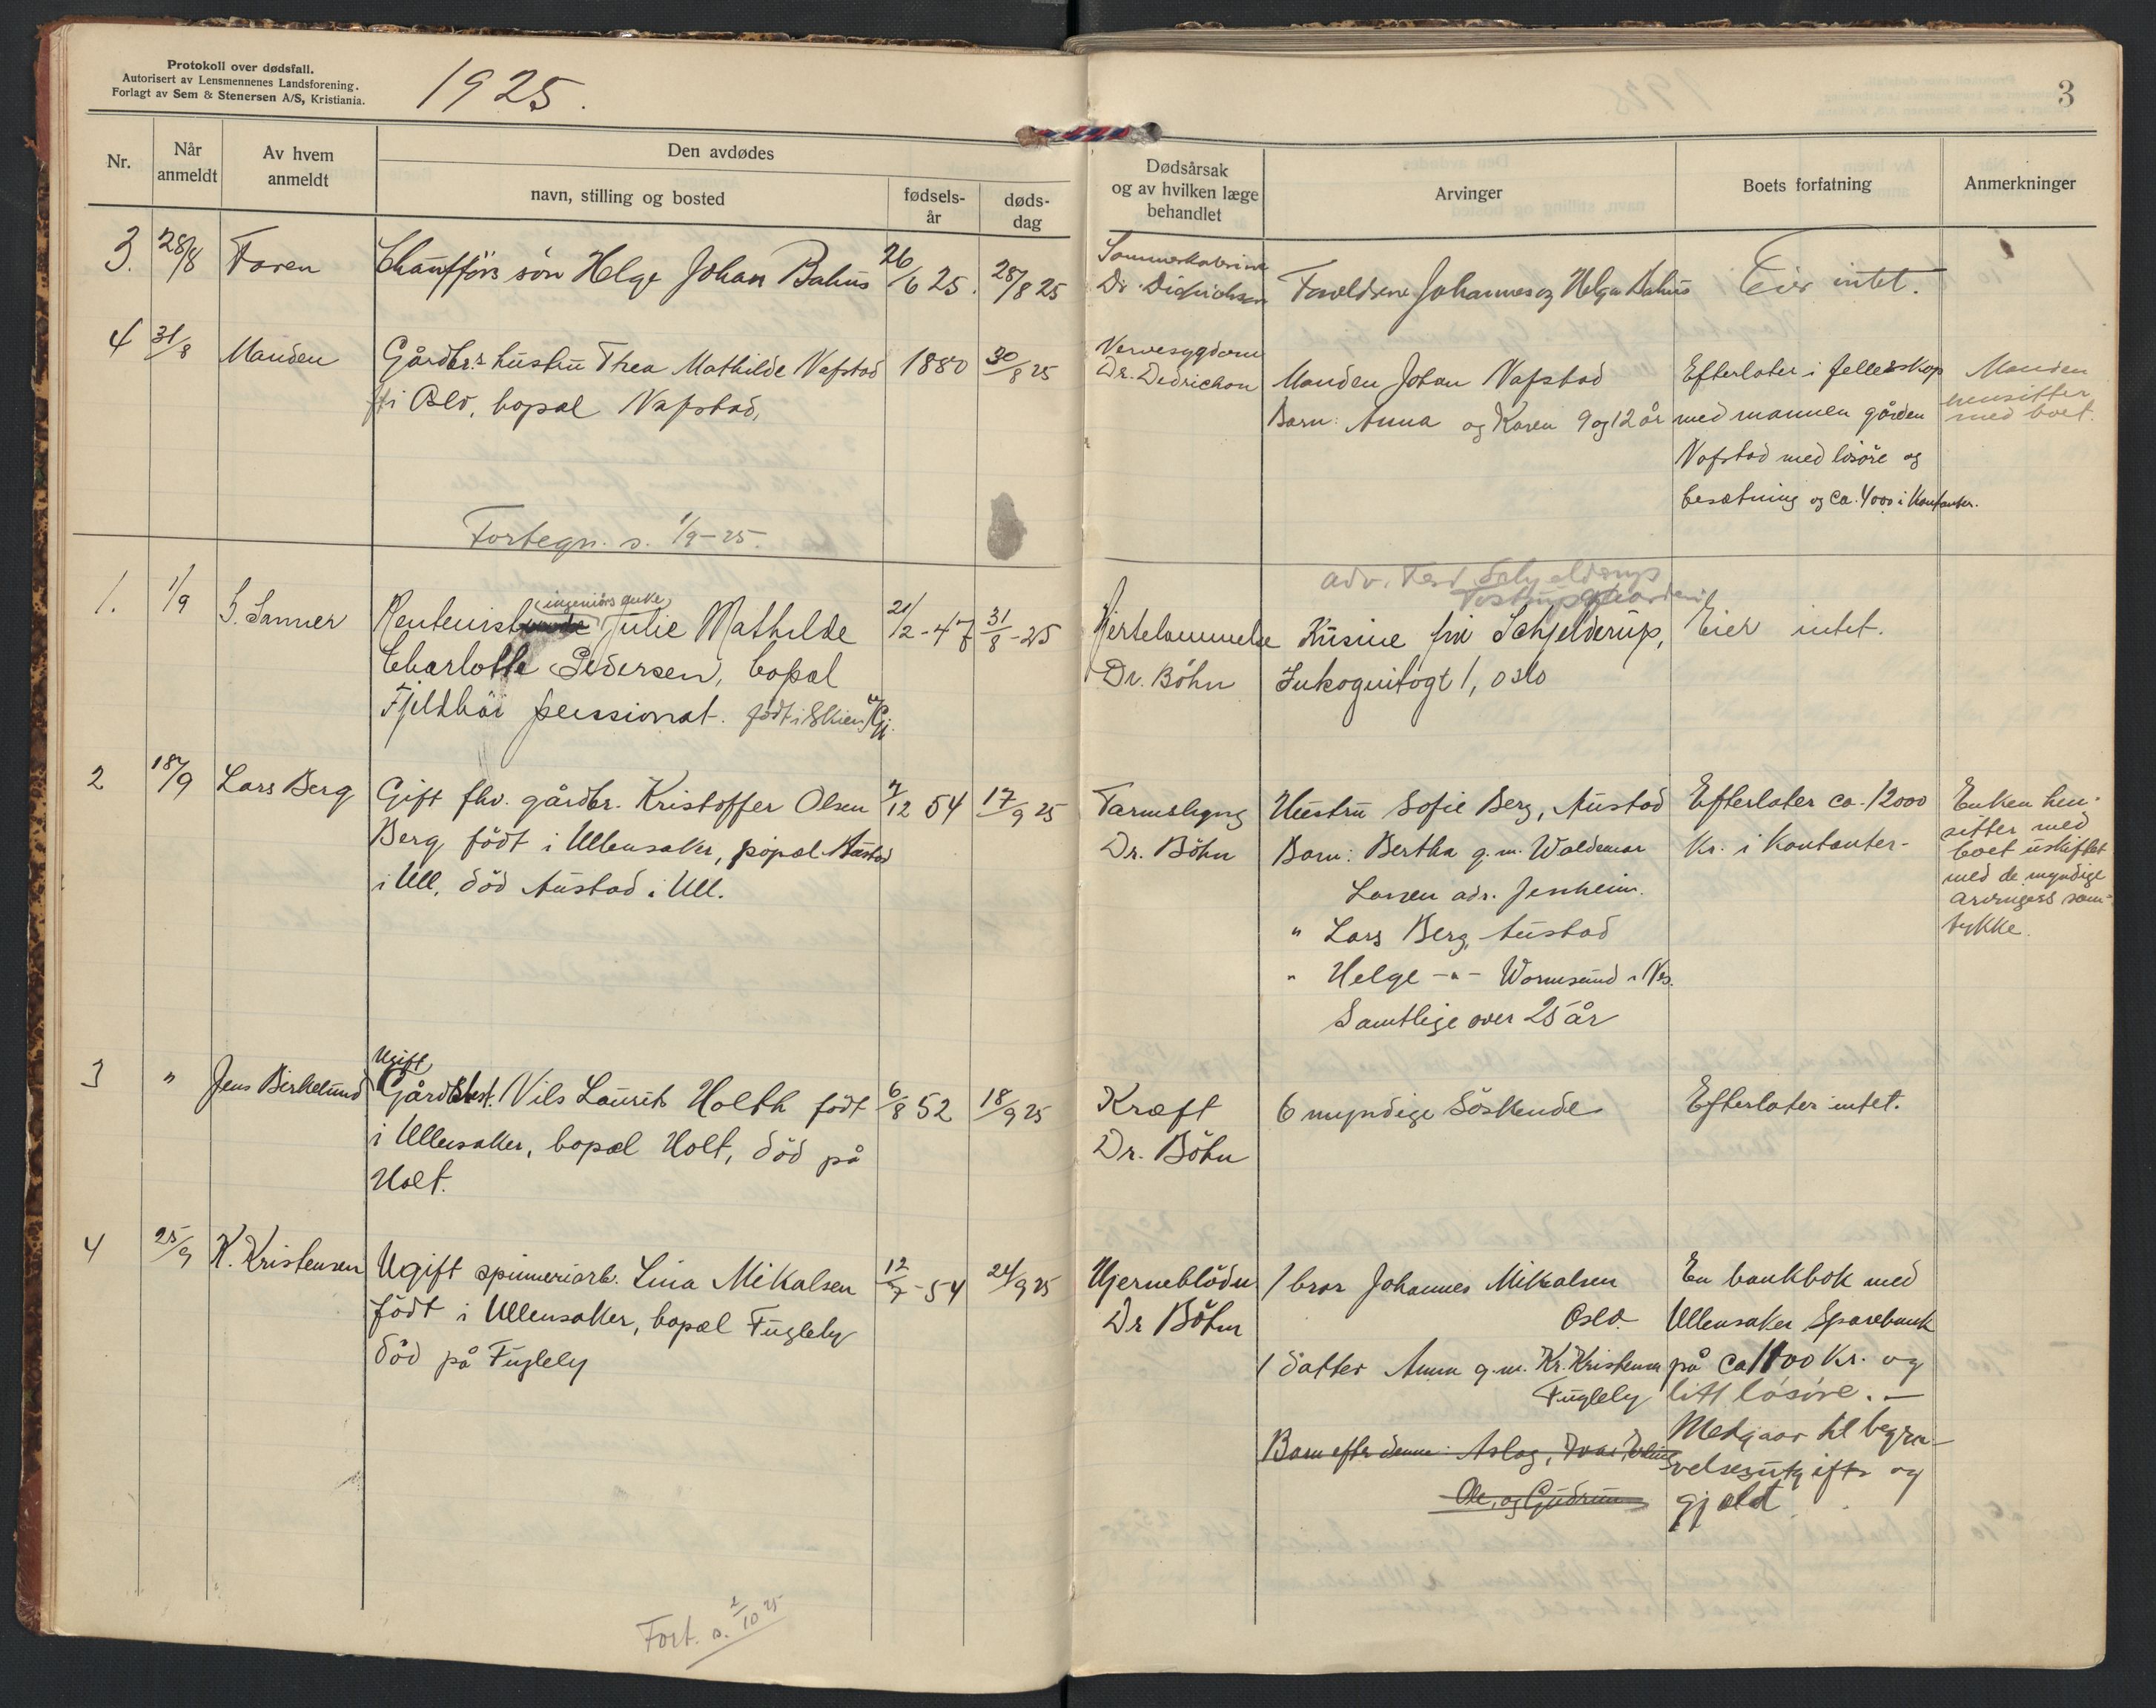 Protokoll over dødsfall.
Autorisert av Lensmennenes Landsforening.
Forlagt av Sem & Stenersen A/S, Kristiania.
1925.
3
Nr.
Når anmeldt
Av hvem anmeldt
Den avdødes
navn, stilling og bosted
fødsels-år
døds-dag
Dødsårsak og av hvilken læge behandlet
Arvinger
Boets forfatning
Anmerkninger
3. 28/8 Faren Chaufförs sön Helge Johan Bahus 26/6 25. 28/8 25
Dr. Didrichsen Foreldrene Johannes og Helga Bahus Eier intet.
4 31/8 Manden Gårdbr.s hustru Thea Mathilde Nafstad 1880 30/8 25
f. i Oslo, bopæl Nafstad,
Nervesygdom
Dr. Dedrichson
Manden Johan Nafstad
Barn: Anna og Karen 9 og 12 år
Efterlater i fellesskap
med mannen gården
Nafstad med lösöre og
besætning og ca. 4000 i Kontanter.
Manden
hensitter
med boet.
Fortegn. s. 1/9-25.
1. 1/9 S. Sanner Rentenist (ingeniörs enke) Julie Mathilde 21/2-47 31/8-25
Charlotte Pedersen, bopæl
Fjeldhöi pensionat. födt i Skien
Hjertelammelse
Dr. Böhn
adv. Ferd. Schjelderup
Tostrupgaarden
Kusine frk Schjelderup,
Inkognitogt 1, Oslo
Eier intet.
2 18/9 Lars Berg Gift fhv. gårdbr. Kristoffer Olsen 7/12 54 17/9 25
Berg födt i Ullensaker, bopæl Austad
i Ull, död Austad i Ull.
Tarmslyng
Dr. Böhn
Hustru Sofie Berg, Austad
Barn: Bertha g.m. Waldemar
Larsen adr. Jessheim.
" Lars Berg, Austad
" Helge -"- Wormsund i Nes.
Samtlige over 25 år
Efterlater ca. 12000
Kr. i Kontanter-
Enken hen-
sitter med
boet uskiftet
med de myndige
arvingers sam-
tykke.
3 " Jens Birkelund Ugift
Gårdbest. Nils Laurits Holth födt 6/8 52 18/9 25
i Ullensaker, bopæl Holt, död på
Holt.
Kræft
Dr. Böhn
6 myndige Söskende
Efterlater intet.
4 25/9 K. Kristensen Ugift spinneriarb. Lina Mikalsen 12/7-54 24/9 25
födt i Ullensaker, bopæl Fuglely
död på Fuglely
Hjerneblödn
Dr Böhn
1 bror Johannes Mikalsen
Oslo.
1 datter Anna g.m. Kr. Kristensen
Fuglely
Barn efter denne: Aslag, Ivar, Erling
Ole, og Gudrun
En bankbok med
Ullensaker Sparebank
på ca 1100 Kr. og
litt lösöre.-
Medgaar til begra-
velsesutgifter og
gjæld.
Fort. s. 2/10 25